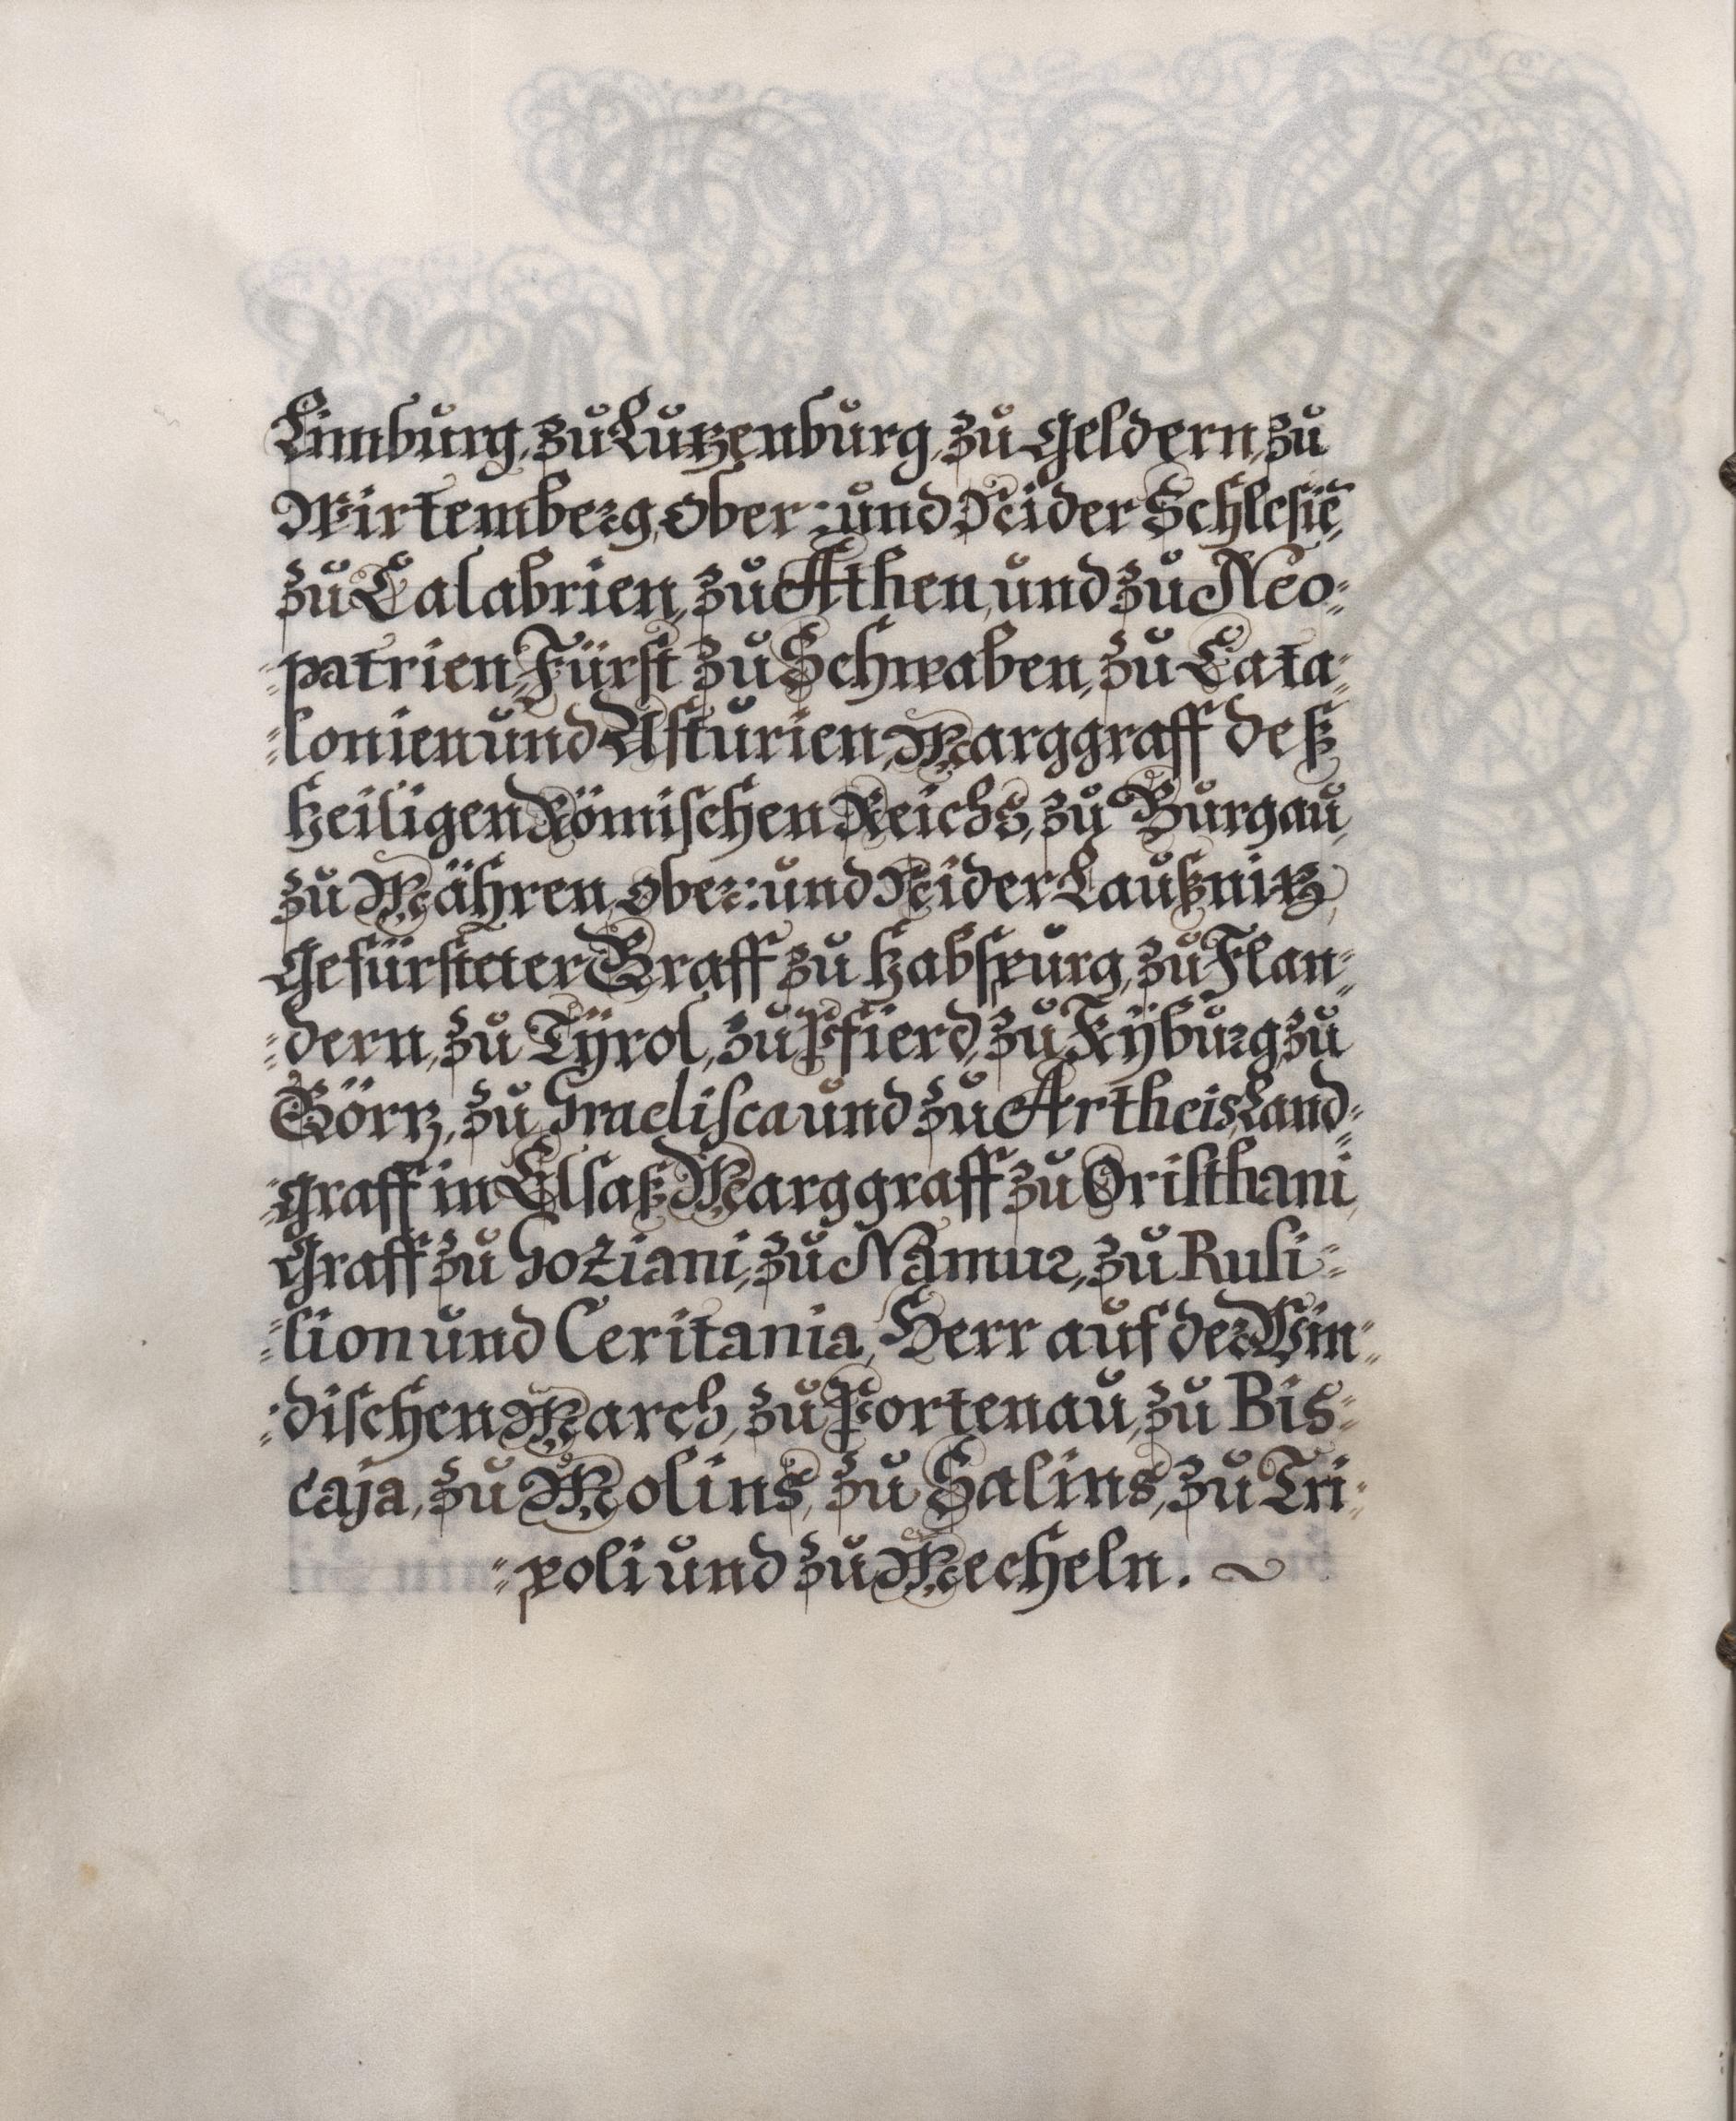 Limburg, zu Lutzenburg, zu Geldern, zu
Wirtemberg, Ober: und Nider Schlesiē,
zu Calabrien, zu Athen, und zu Neo=
=patrien, Fürst zu Schwaben, zu Cata=
=lonien und Asturien, Marggraff deß
Heiligen Römischen Reichs, zu Burgau,
zu Mähren, Ober: und Nider Laußnitz,
Gefürsteter Graff zu Habspurg, zu Flan=
=dern, zu Tÿrol, zu Pfierd, zu Kÿburg, zu
Görtz, zu Gradisca und zu Artheis, Land=
=graff in Elsaß, Marggraff zu Oristhani,
Graff zu Goziani, zu Namur, zu Rusi=
=lion und Ceritania, Herr auf der Win=
=dischen March, zu Portenau, zu Bis=
caja, zu Molins, zu Salins, zu Tri=
=poli und zu Mecheln.